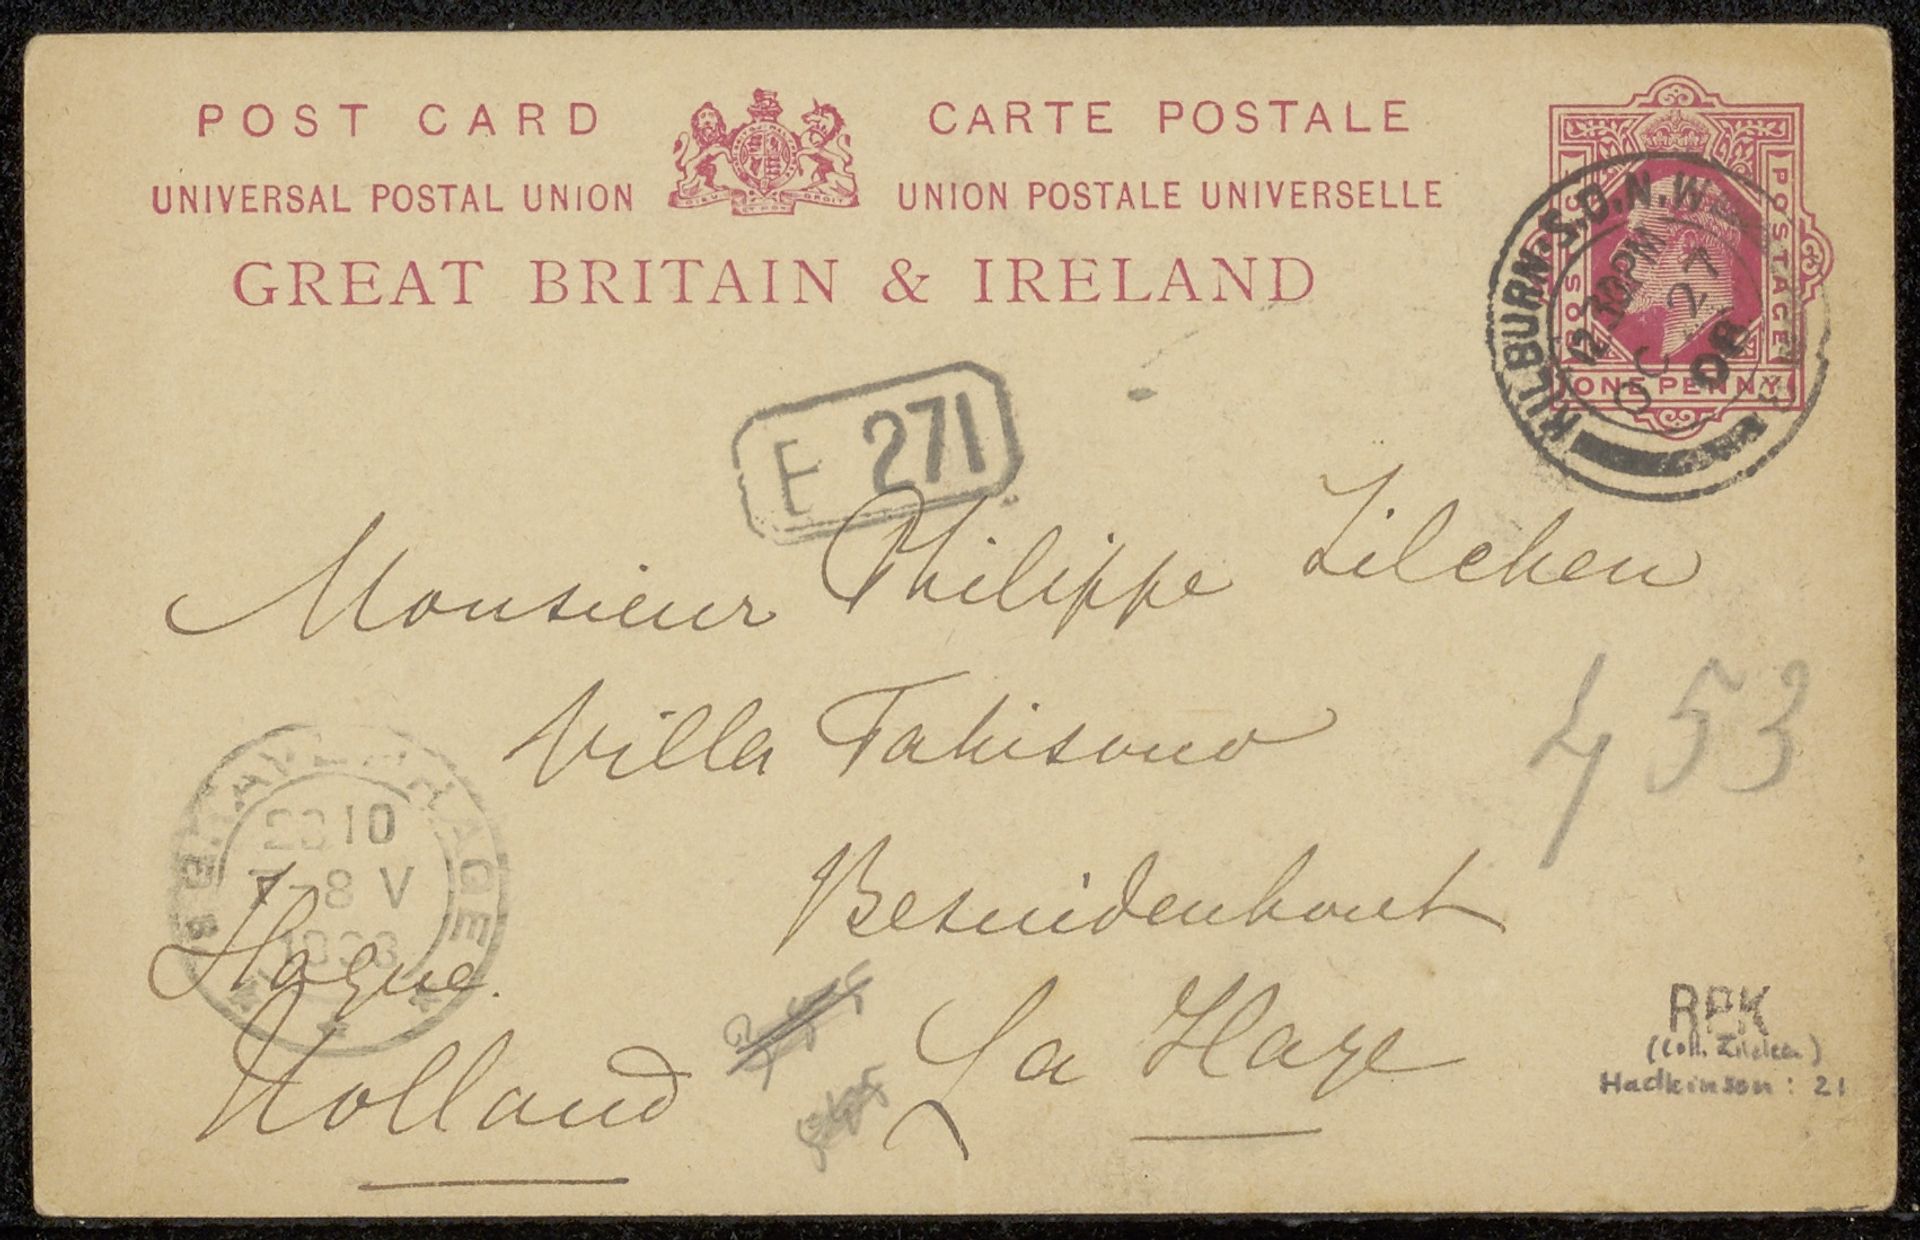 POST CARD
CARTE POSTALE
UNIVERSAL POSTAL UNION
UNION POSTALE UNIVERSELLE
GREAT BRITAIN & IRELAND
DIEU ET MON DROIT
POSTAGE
ONE PENNY
KILBURN·S.O.N.W.
12 30PM
OC 27
08
E 271
Monsieur Philippe Zilcken
Villa Tahisouo
453
Besuidenhout
La Haye
Hague.
Holland
'S GRAVENHAGE
2810
7-8 V
1908
RPK
(Coll. Zilcken)
Hadkinson: 21